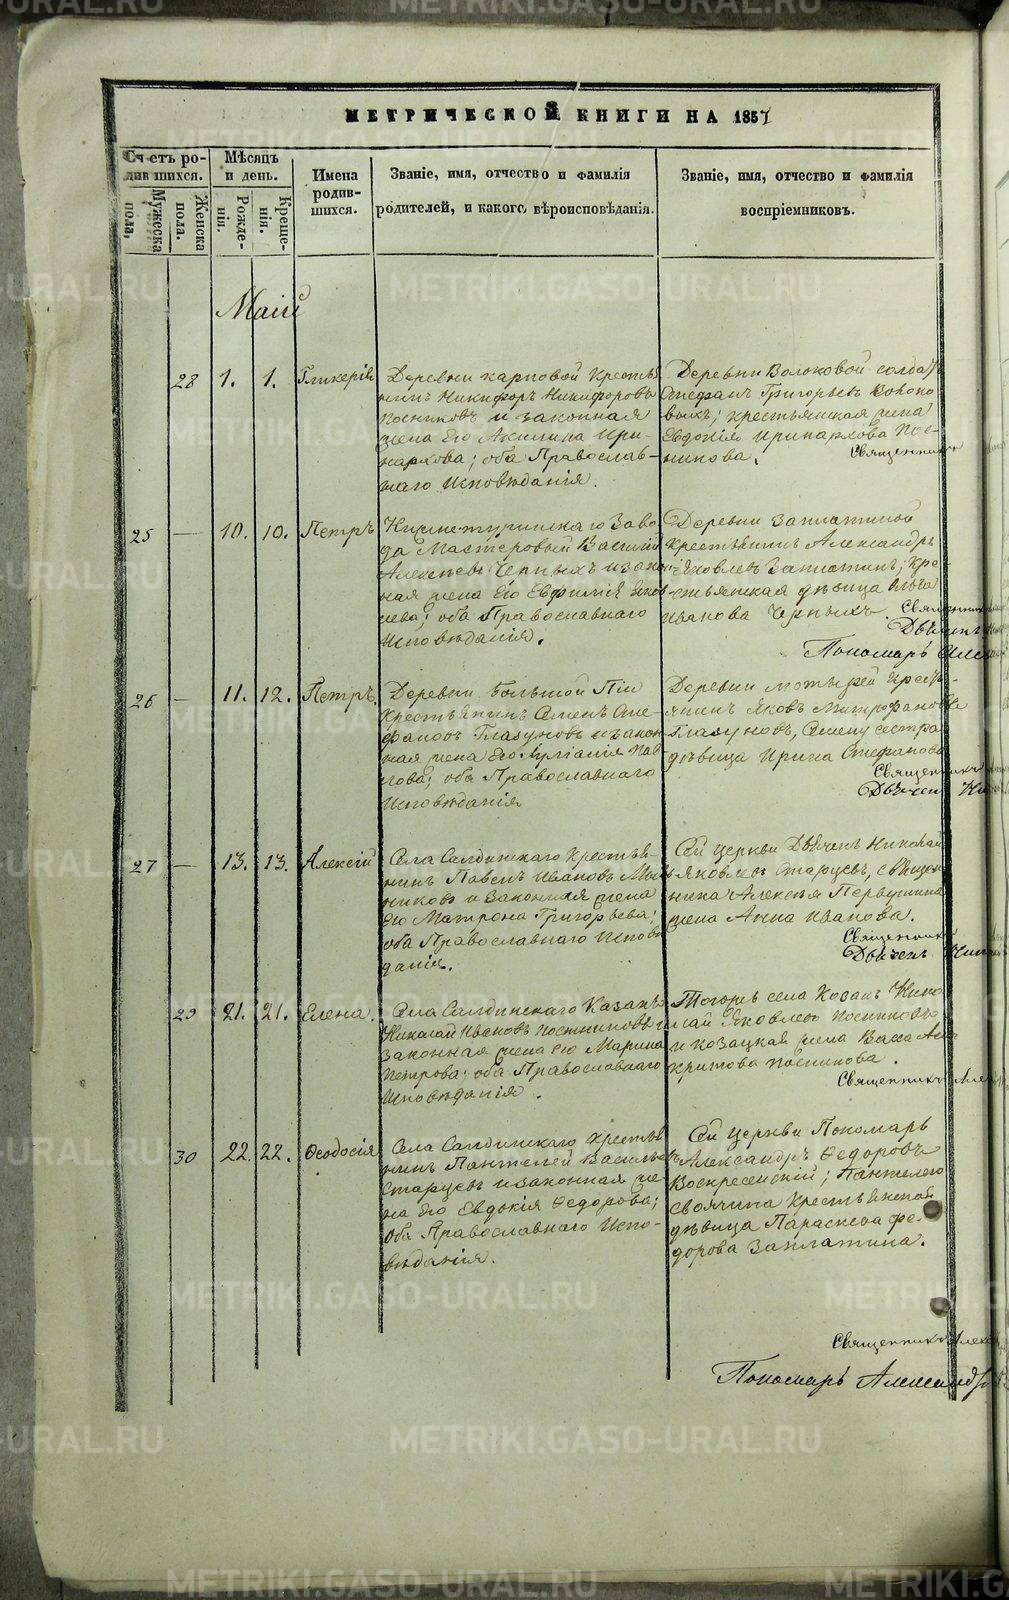 METRIKI.GASO-URAL.RU
МЕТРИЧЕСКОЙ КНИГИ НА 1857
Счетъ ро-
дившихся.
Мѣсяцъ
и день.
Имена
родив-
шихся.
Званіе, имя, отчество и фамилія
родителей, и какого вѣроисповѣданія.
Званіе, имя, отчество и фамилія
воспріемниковъ.
Мужеска
пола.
Женска
пола.
Рожде-
нія.
Креще-
нія.
Маій
28 1. 1. Гликерія
Деревни Карповой Крестья
нинъ Никифоръ Никифоровъ
Посниковъ и законная
жена его Акилина Ири-
нархова; оба Православ-
наго Исповѣданія.
Деревни Волоковой солдатъ
Стефанъ Григорьевъ Воконо
выхъ; крестьянская жена
Евдокія Иринархова Пос-
никова.
Священникъ
25 — 10. 10. Петръ
Нижнетуринскаго Заво
да Мастеровый Василій
Алексѣевъ Черныхъ и закон
ная жена Его Евфимія Яков
лева; оба Православнаго
Исповѣданія.
Деревни Заплатиной
Крестьянинъ Александръ
Яковлевъ Заплатинъ; Кре
стьянская дѣвица Ольга
Иванова Черныхъ.
Священникъ
Дьячекъ
Пономарь Алекса
26 — 11. 12. Петръ.
Деревни Большой Піи
Крестьянинъ Семенъ Сте-
фановъ Глазуновъ и закон
ная жена Его Іуліанія Пав
лова; оба Православнаго
Исповѣданія
Деревни Мотырей Кресть-
янинъ Яковъ Митрофановъ
Глазуновъ, Семену сестра
дѣвица Ирина Стефанова
Священникъ
Дьячекъ Ни
27 — 13. 13. Алексій
Села Салдинскаго Крестья-
нинъ Павелъ Ивановъ Мыль
никовъ и Законная жена
Его Матрона Григорьева;
оба Православнаго Исповѣ
данія.
Сей Церкви Дьячекъ Николай
Яковлевъ Старцевъ, священ
ника Алексѣя Первушина
жена Анна Иванова.
Священникъ
Дьячекъ Ник
29 21. 21. Елена.
Села Салдинскаго Казакъ
Николай Ивановъ Постниковъ и
Законная жена его Марина
Петрова; оба Православнаго
Исповѣданія.
Тогожъ села Козакъ Нико
лай Яковлевъ Посниковъ
и Козацкая жена Васса Але
Хритова Посникова.
Священникъ Алек
30 22. 22. Ѳеодосія
Села Салдинскаго Крестья
нинъ Пантелей Василье
Старцевъ и законная же
на Его Евдокія Ѳедорова;
Оба Православнаго Испо-
вѣданія.
Сей Церкви Пономарь
Александръ Ѳедоровъ
Воскресенскій; Пантелею
своячина Крестьянская
дѣвица Параскева Фе-
дорова Заплатина.
Священникъ Алекс
Пономарь Александръ